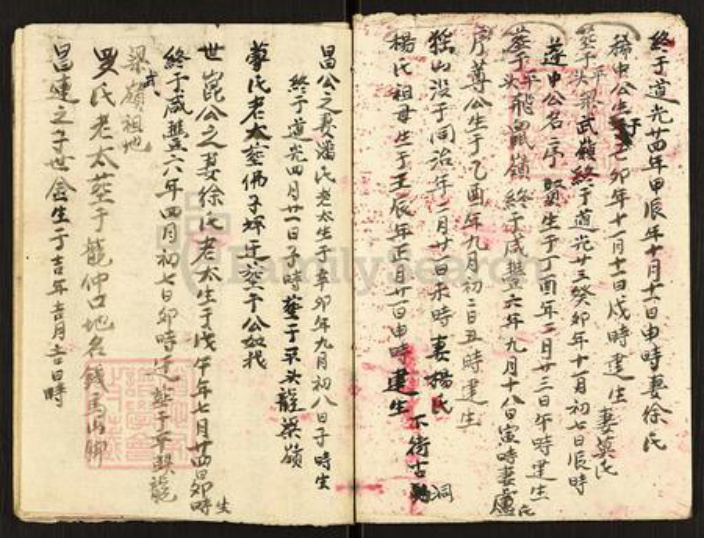 终于道光廿四年甲辰年十月十一日申時妻徐氏
稀中公生于乙卯年十一月十一日戌時建生 妻莫氏
葬于平头飛武嶺終于道光廿三癸卯年十一月初七日辰時
莲中公名序賢生于丁酉年二月廿三日午時建生
葬于平头飛鼠嶺終于咸豐六年九月十八日寅時妻盧氏
序尊公生于乙酉年九月初二日丑時建生
猺山没于同治年二月廿一日未時妻楊氏
楊氏祖母生于壬辰年正月廿一日申時建生 下街古 洞
昌公之妻潘氏老太生于辛卯年九月初八日子時生
終于道光四月廿一日子時葬于平头龍梁嶺
蒙氏老太葬佛子坪迁葬于公如
世崑公之妻徐氏老太生于戊午年七月廿四日卯時生
終于咸豐六年四月初七日卯時迁葬于平頭龍
梁武嶺祖地
罗氏老太葬于龍仲口地名錢馬山脚
昌連之子世金生于吉年吉月吉日時
FamilySearch